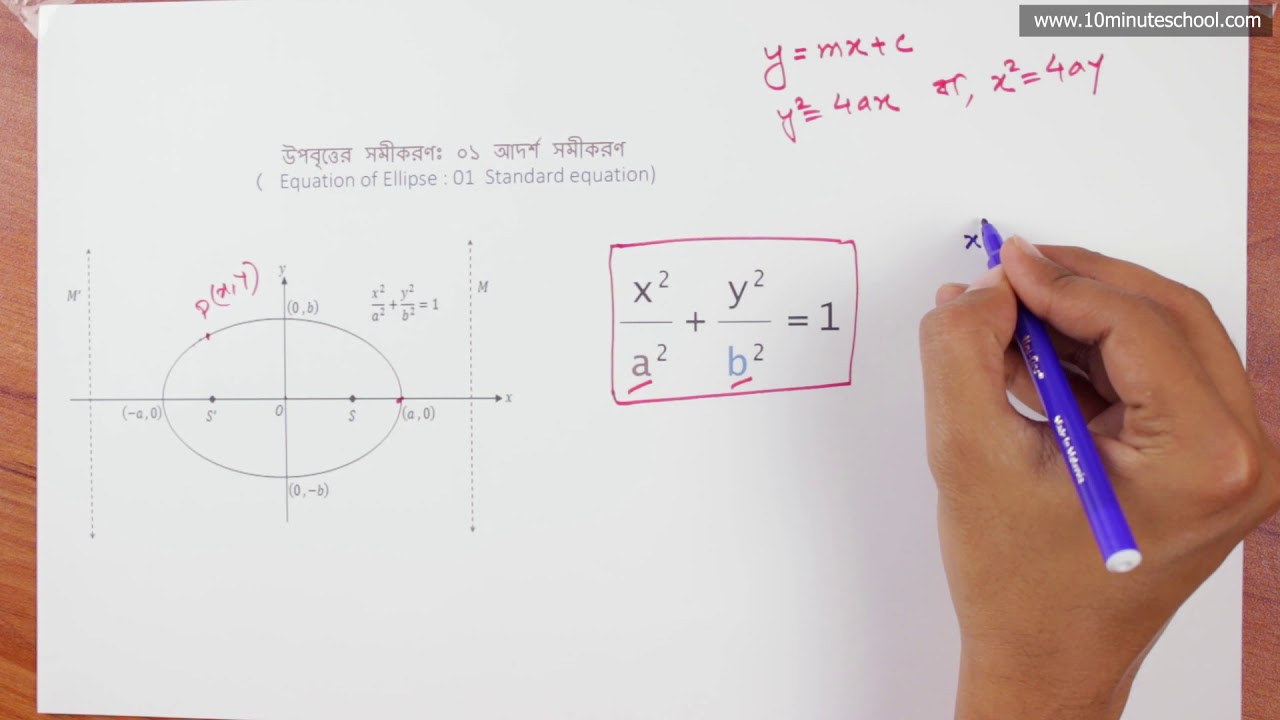 www.10minuteschool.com
y = mx + c
y² = 4ax বা, x² = 4ay
উপবৃত্তের সমীকরণঃ ০১ আদর্শ সমীকরণ
( Equation of Ellipse : 01 Standard equation)
M'
P(x,y)
y
(0,b)
x²/a² + y²/b² = 1
M
x²/a² + y²/b² = 1
x
(-a,0)
S'
O
S
(a,0)
x
(0,-b)